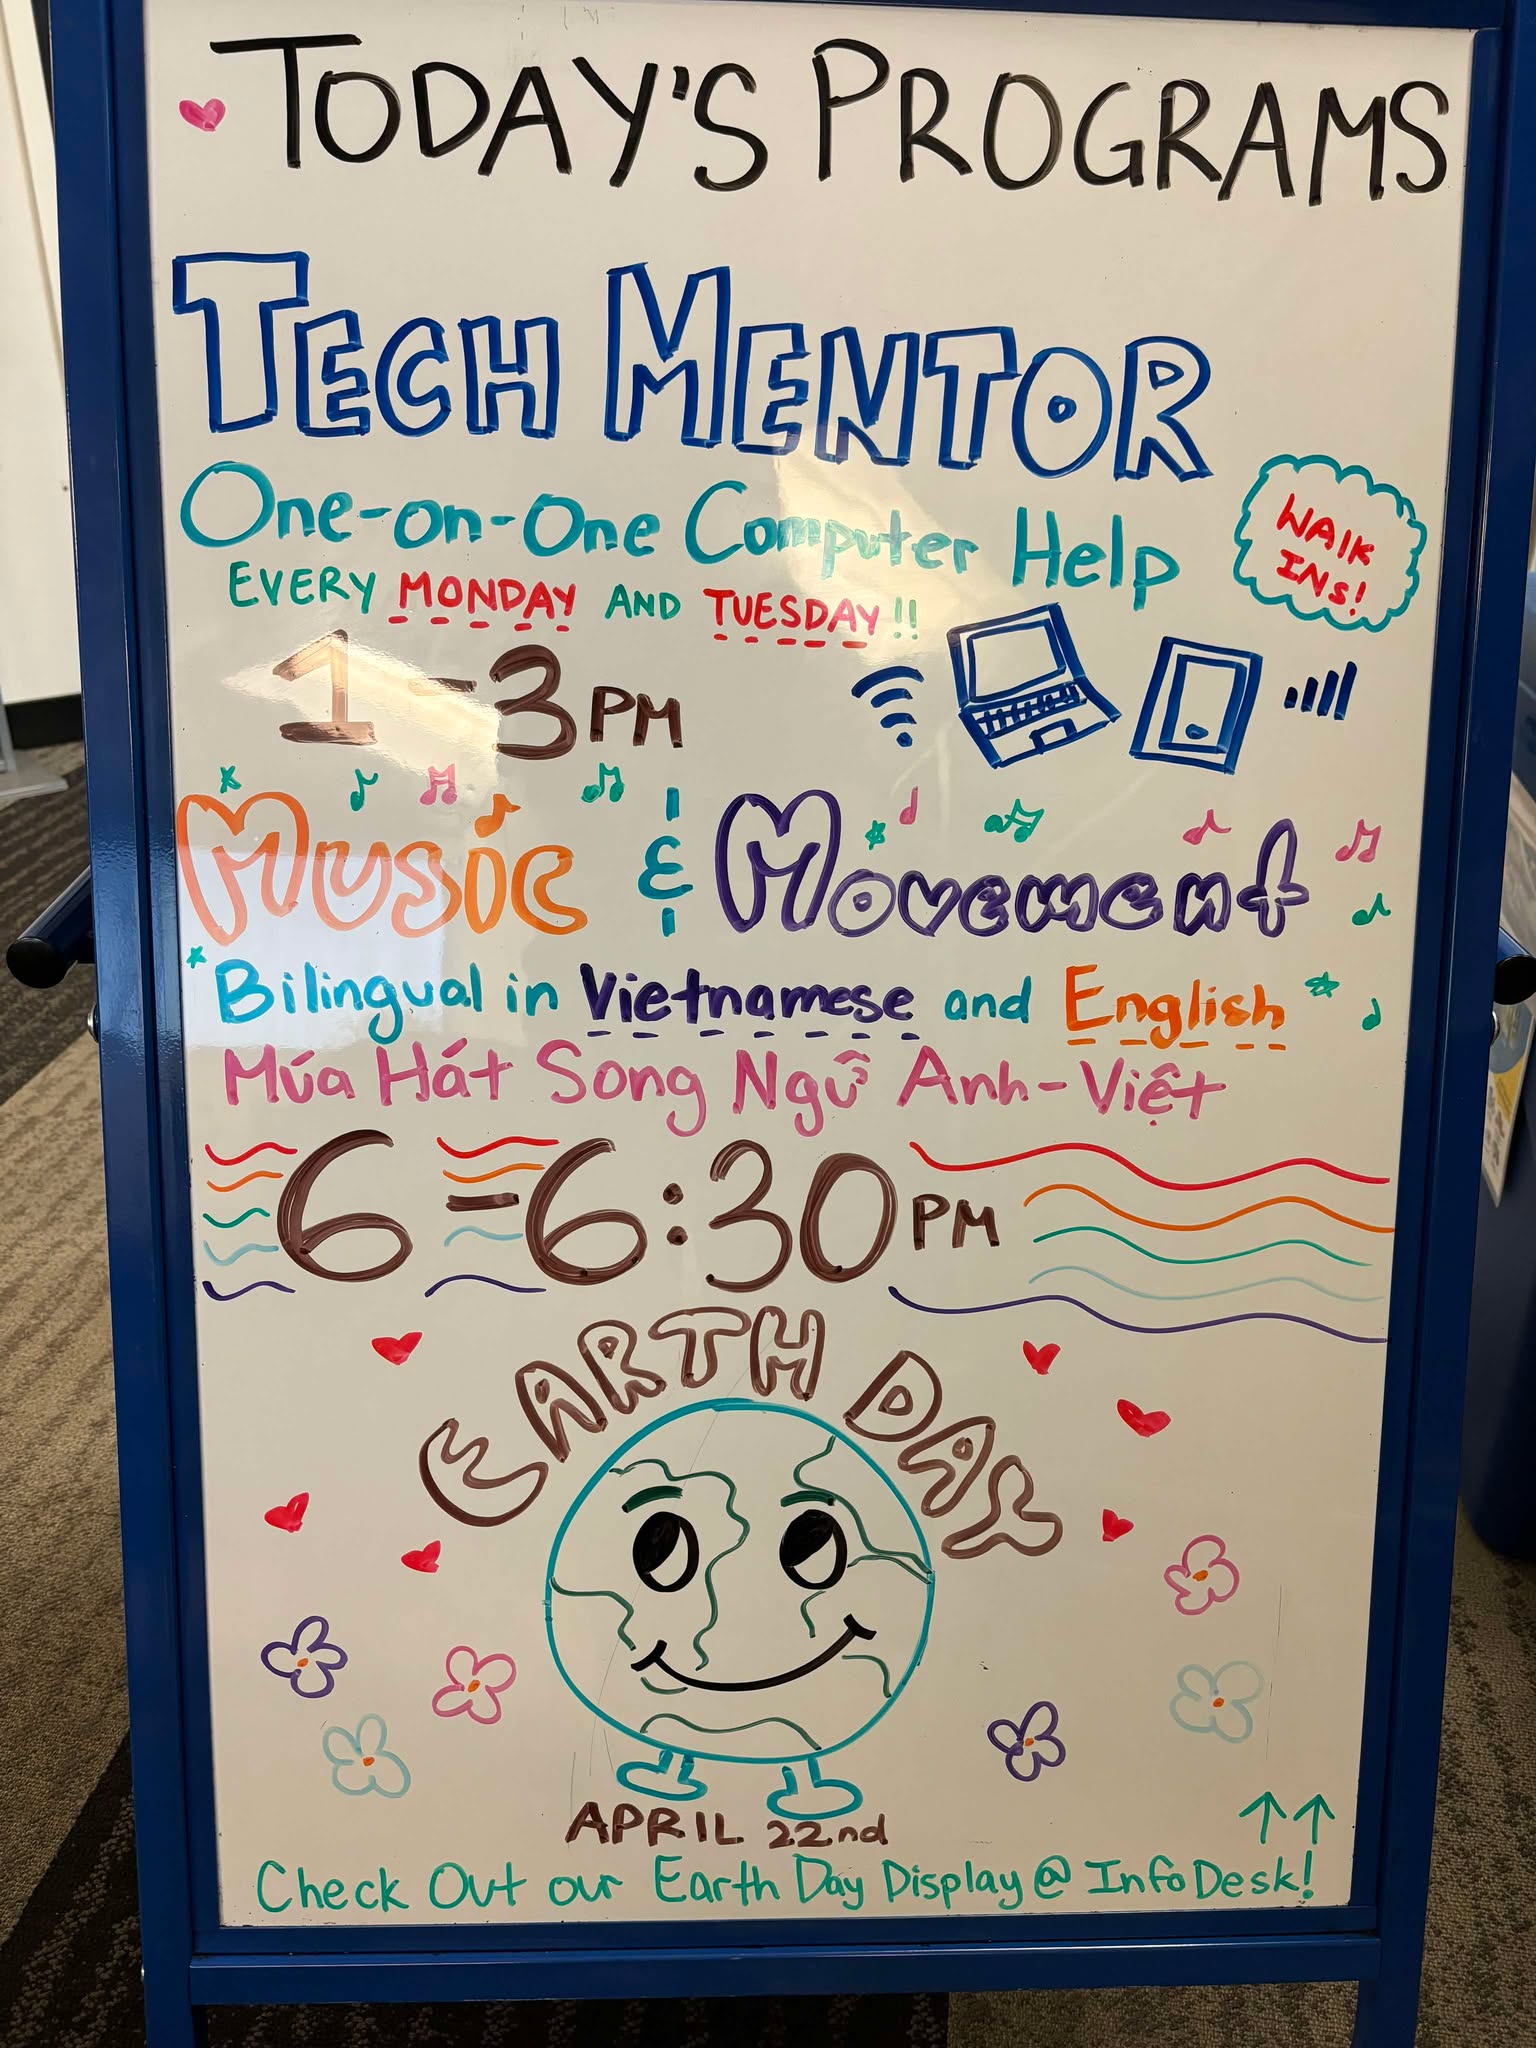 TODAY'S PROGRAMS
TECH MENTOR
One-on-One Computer Help
WALK
INS!
EVERY MONDAY AND TUESDAY!!
1-3 PM
Music & Movement
Bilingual in Vietnamese and English
Múa Hát Song Ngữ Anh-Việt
6-6:30 PM
EARTH DAY
APRIL 22nd
Check Out our Earth Day Display @ InfoDesk!